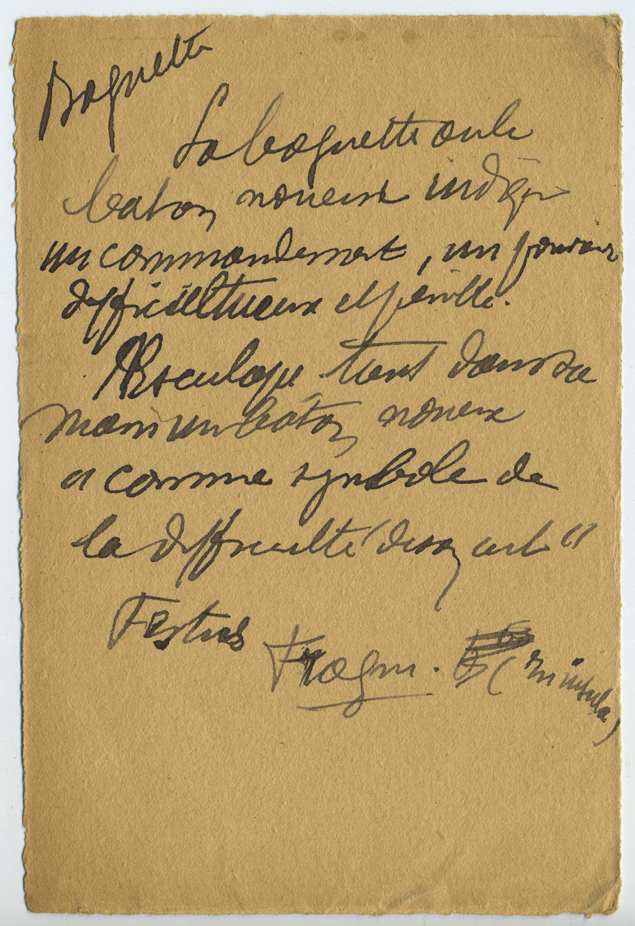 Baguette
La baguette ou le
baton noueux indique
un commandement, un pouvoir
difficultueux et pénible.
Æsculape tient dans sa
main un bâton noueux
"comme symbole de
la difficulté de son art"
Festus
Fragm. (in insula)